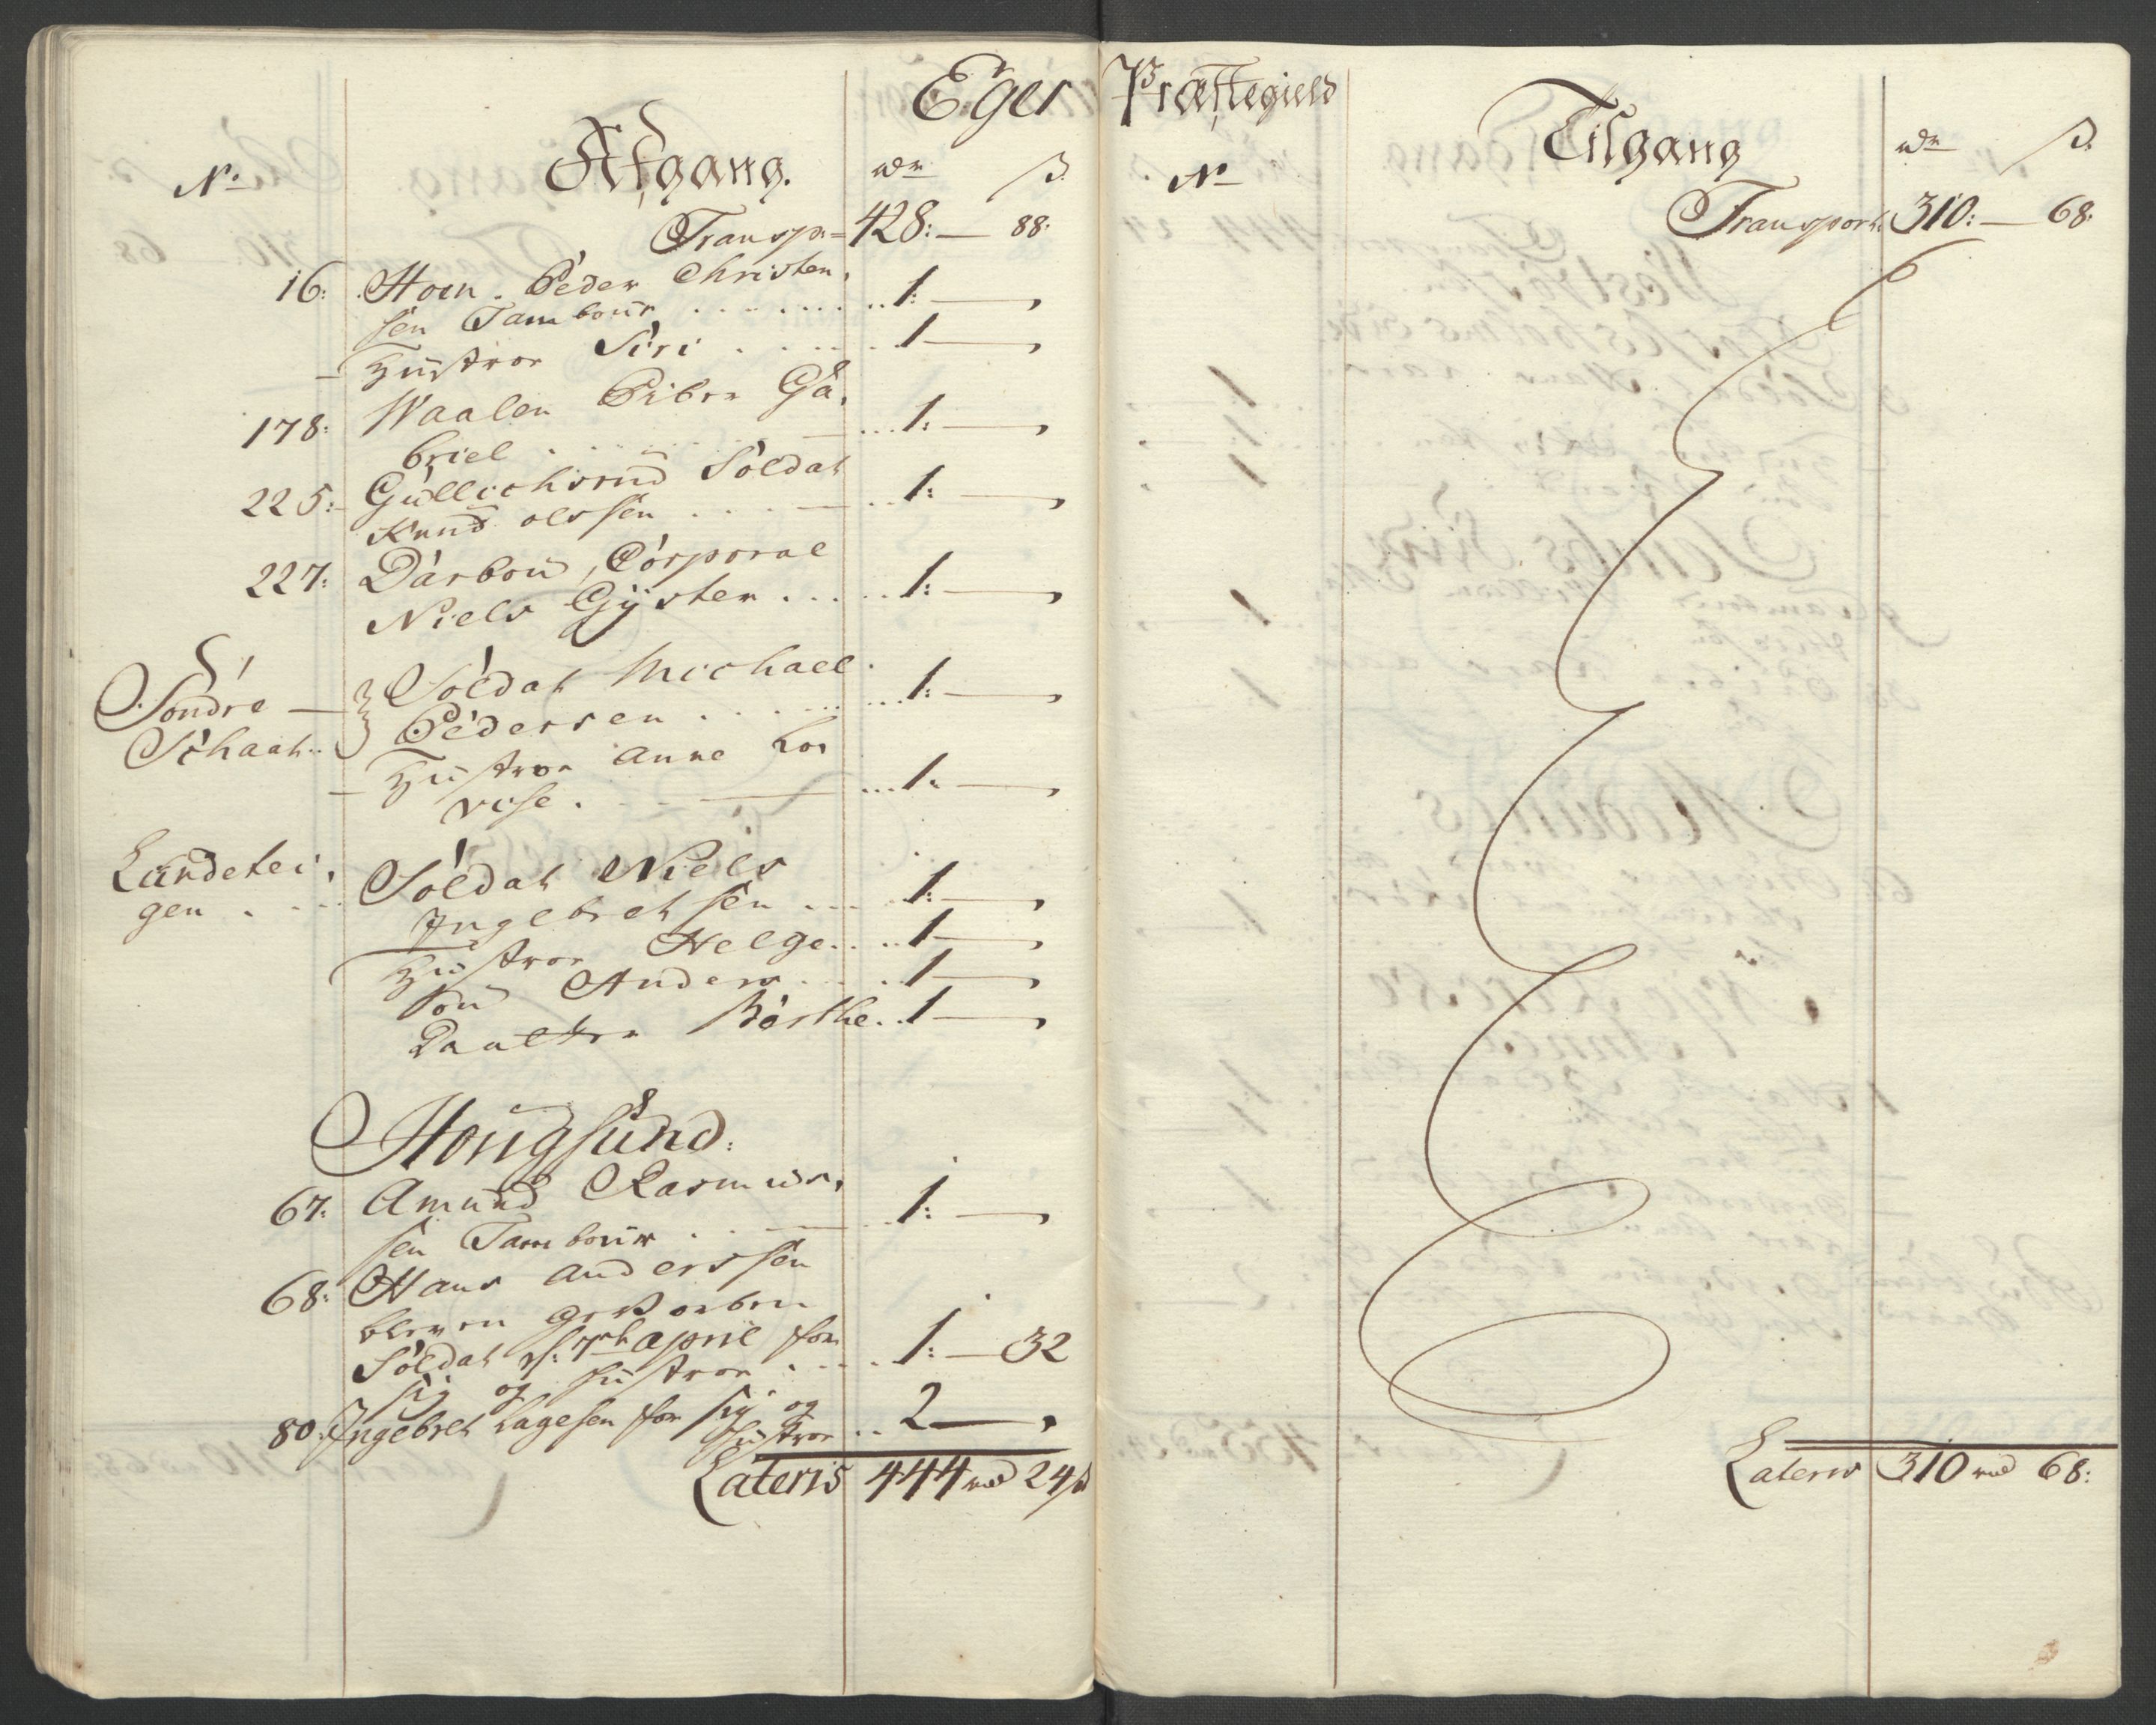 Eger Præstegield
No
Afgang.
rdr
ß.
Transp:
428:
88:
16:
Hoen. Peder Christen,
sen Tambour
1:
Hustroe Siri
1
178:
Waalen Piber Ga,
briel
1:
225:
Gullichsrud Soldat
Knud olssen
1:
227:
Darbou, Corporal
Niels Gÿster
1:
Söndre
Schaat
Soldat Michael
Pedersen
1:
Hustroe Anne Lo,
vise
1.
Landetei,
gen
Soldat Niels
Ingebretsen
1:
Hustroe Helge
1
Son Anders
1
Daatter Börthe
1
Hougsund:
67:
Amund Rasmus,
sen Tambour
1:
68:
Hans Anderssen
bleven
Soldat d: 7de April for
sig og Hustroe
1: 32
80.
Ingebret Lagesen for sig og
Hustroe
2
Lateris 444 rd 24 ß
No
Tilgang
rdr
ß.
Transport:
310:
68:
Lateris 310 rd 68: